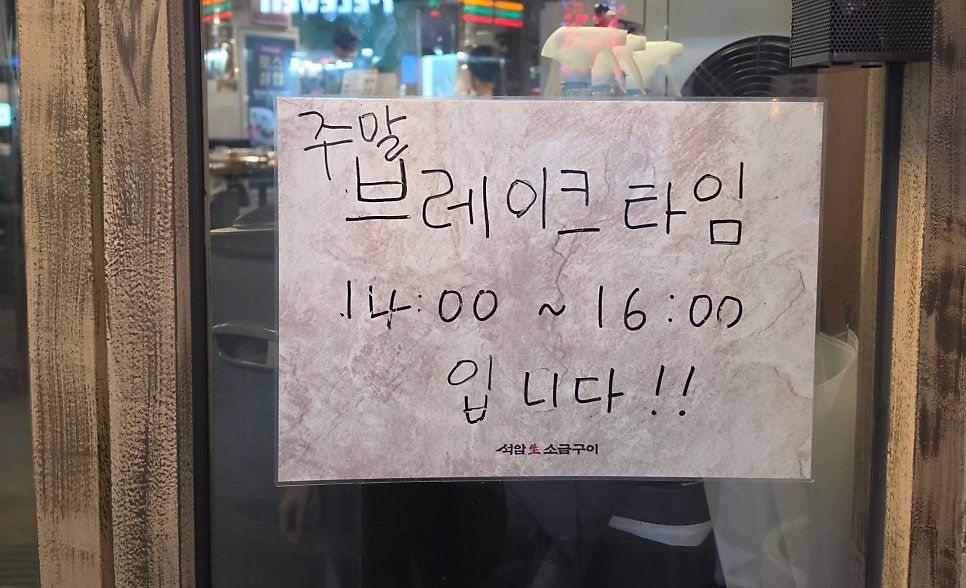 주말
브레이크 타임
14:00 ~ 16:00
입니다!!
석암生소금구이